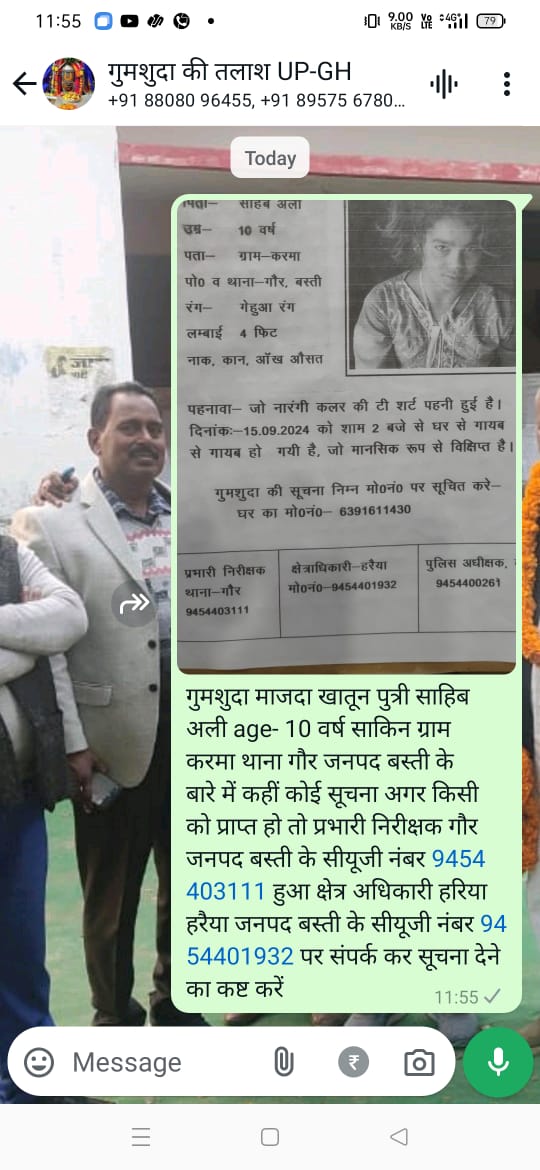 11:55
9.00 KB/S
Vo LTE
4G+
79
गुमशुदा की तलाश UP-GH
+91 88080 96455, +91 89575 6780...
Today
पिता— साहिब अली
उम्र— 10 वर्ष
पता— ग्राम—करमा
पो0 व थाना—गौर, बस्ती
रंग— गेहुआ रंग
लम्बाई 4 फिट
नाक, कान, ऑख औसत
पहनावा— जो नारंगी कलर की टी शर्ट पहनी हुई है।
दिनांकः—15.09.2024 को शाम 2 बजे से घर से गायब
से गायब हो गयी है, जो मानसिक रूप से विक्षिप्त है।
गुमशुदा की सूचना निम्न मो0नं0 पर सूचित करे—
घर का मो0नं0— 6391611430
प्रभारी निरीक्षक
थाना—गौर
9454403111
क्षेत्राधिकारी—हरैया
मो0नं0—9454401932
पुलिस अधीक्षक,
9454400261
गुमशुदा माजदा खातून पुत्री साहिब
अली age- 10 वर्ष साकिन ग्राम
करमा थाना गौर जनपद बस्ती के
बारे में कहीं कोई सूचना अगर किसी
को प्राप्त हो तो प्रभारी निरीक्षक गौर
जनपद बस्ती के सीयूजी नंबर 9454
403111 हुआ क्षेत्र अधिकारी हरिया
हरैया जनपद बस्ती के सीयूजी नंबर 94
54401932 पर संपर्क कर सूचना देने
का कष्ट करें
11:55
Message
₹